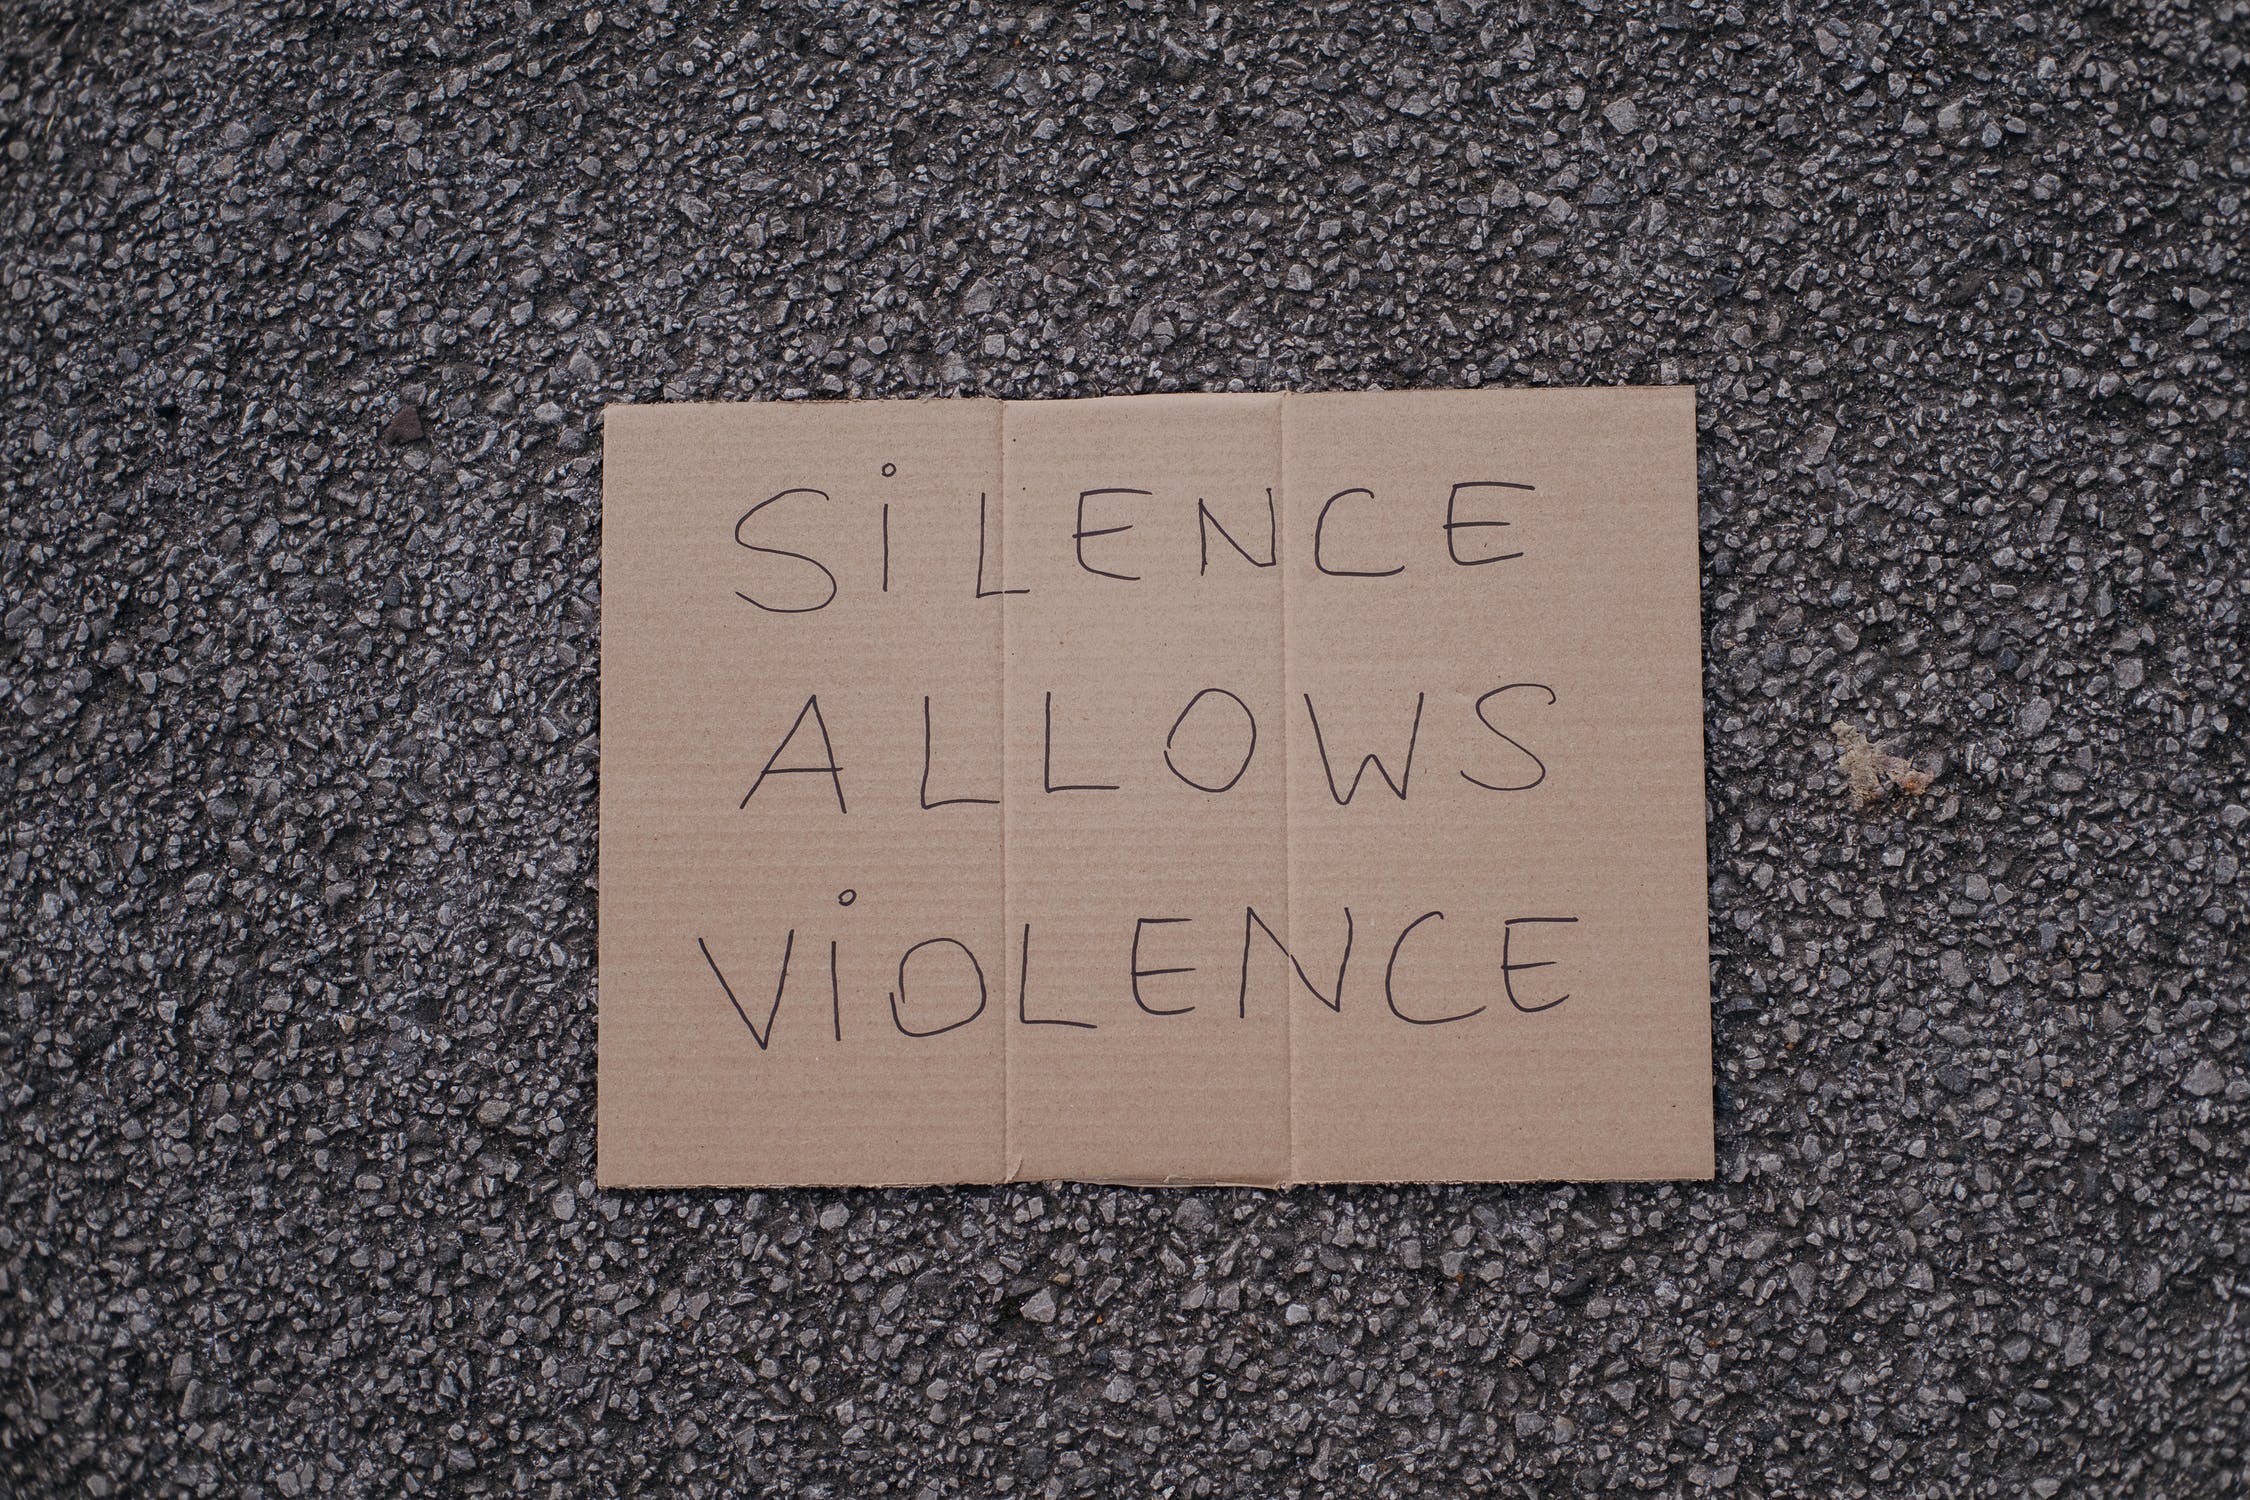 SiLENCE
ALLOWS
ViOLENCE